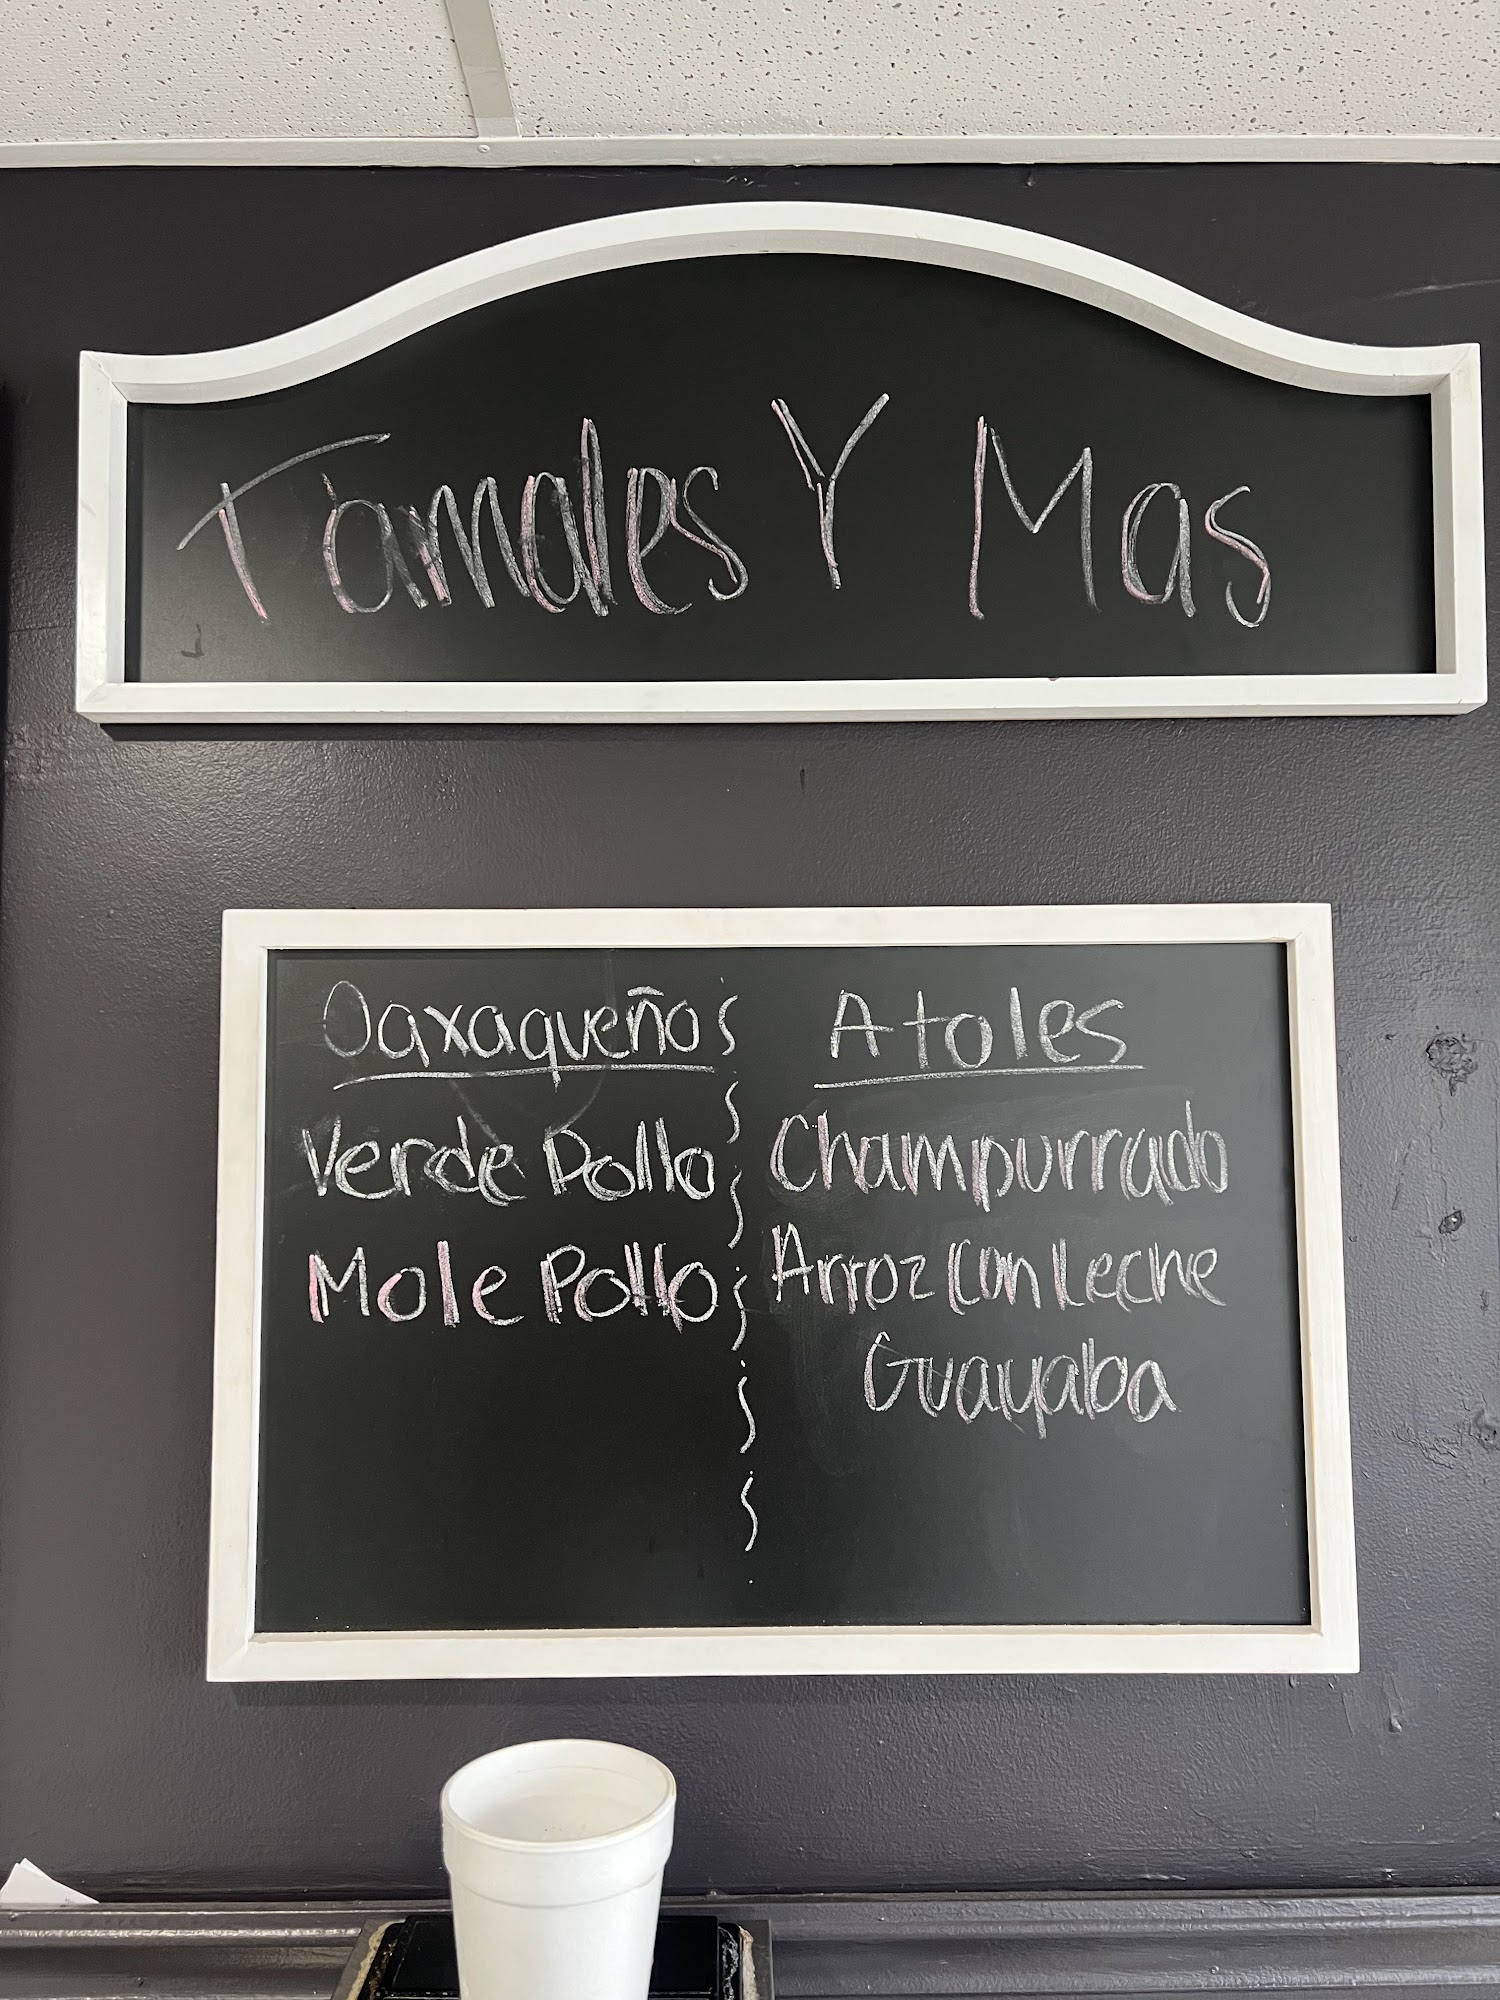 Tamales Y Mas
Oaxaqueños
Verde Pollo
Mole Pollo
Atoles
Champurrado
Arroz Con Leche
Guayaba